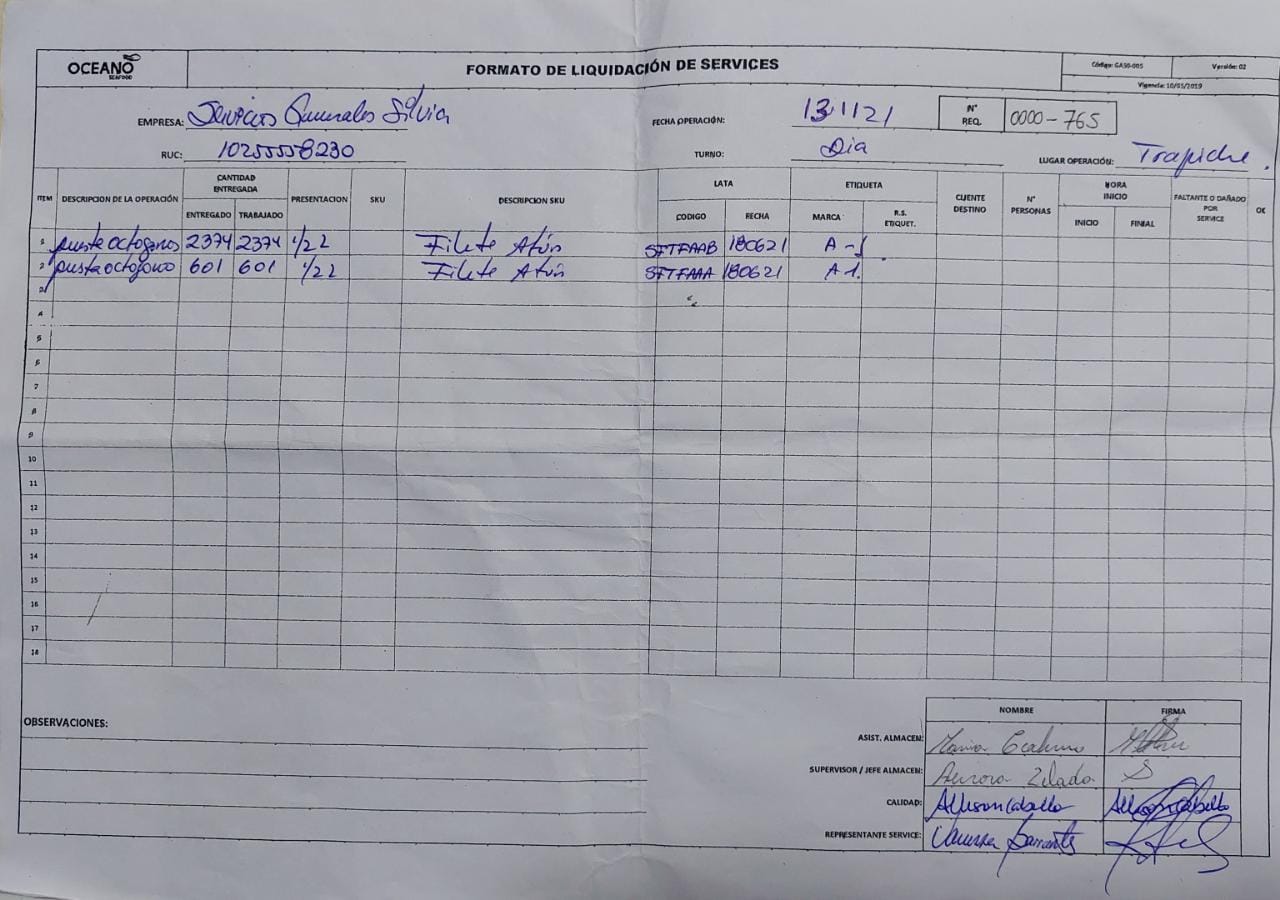 OCEANO SEAFOOD
FORMATO DE LIQUIDACIÓN DE SERVICES
Código: GASG-005 Versión: 02
Vigencia: 10/05/2019
EMPRESA: Servicios Generales Silvia
FECHA OPERACIÓN: 13·1121
N° REQ. 0000-765
RUC: 10255558230
TURNO: Dia
LUGAR OPERACIÓN: Trapiche.
ITEM DESCRIPCION DE LA OPERACIÓN CANTIDAD ENTREGADA PRESENTACION SKU DESCRIPCION SKU LATA ETIQUETA CLIENTE DESTINO N° PERSONAS HORA INICIO FALTANTE O DAÑADO POR SERVICE OK
ENTREGADO TRABAJADO CODIGO FECHA MARCA R.S. ETIQUET. INICIO FINIAL
1 puesta octogonos 2374 2374 1/22 Filete Atún SFTFAAB 180621 A-1
2 puesta octogono 601 601 1/22 Filete Atún SFTFAAA 180621 A1.
3
4
5
6
7
8
9
10
11
12
13
14
15
16
17
18
OBSERVACIONES:
NOMBRE FIRMA
ASIST. ALMACEN:
SUPERVISOR / JEFE ALMACEN: Aurora Zelada
CALIDAD: Allison Cabello Allison Cabello
REPRESENTANTE SERVICE: Vanessa Barrantes